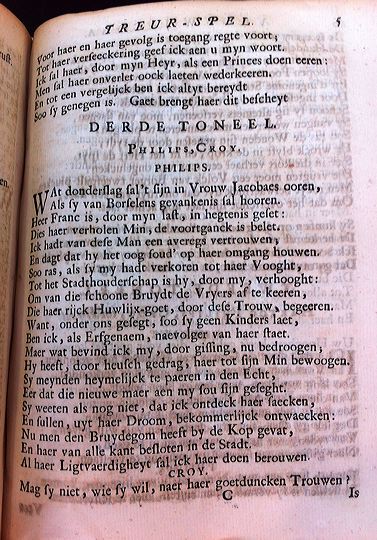 TREUR-SPEL. 5
Voor haer en haer gevolg is toegang regte voort;
Tot haer verseeckering geef ick aen u myn woort.
Ick sal haer, door myn Heyr, als een Princes doen eeren:
Men sal haer onverlet oock laeten wederkeeren.
En tot een vergelijck ben ick altyt bereydt
Soo sy genegen is. Gaet brengt haer dit bescheyt
DERDE TONEEL.
PHILIPS, CROY.
PHILIPS.
WAt donderslag sal't sijn in Vrouw Jacobaes ooren,
Als sy van Borselens gevankenis sal hooren.
Heer Franc is, door myn last, in hegtenis geset:
Dies haer verholen Min, de voortganck is belet.
Ick hadt van dese Man een averegs vertrouwen;
En dagt dat hy het oog soud' op haer omgang houwen.
Soo ras, als sy my hadt verkoren tot haer Vooght,
Tot het Stadthouderschap is hy, door my, verhooght:
Om van die schoone Bruydt de Vryers af te keeren,
Die haer rijck Huwlijx-goet, door dese Trouw, begeeren.
Want, onder ons gesegt, soo sy geen Kinders laet,
Ben ick, als Erfgenaem, naevolger van haer staet.
Maer wat bevind ick my, door gissing, nu bedroogen;
Hy heeft, door heusch gedrag, haer tot sijn Min bewoogen.
Sy meynden heymelijck te paeren in den Echt,
Eer dat die nieuwe maer aen my sou sijn geseght.
Sy weeten als nog niet, dat ick ontdeck haer saecken,
En sullen, uyt haer Droom, bekommerlijck ontwaecken:
Nu men den Bruydegom heeft by de Kop gevat,
En haer van alle kant besloten in de Stadt.
Al haer Ligtvaerdigheyt sal ick haer doen berouwen.
CROY.
Mag sy niet, wie sy wil, naer haer goetduncken Trouwen?
C Is